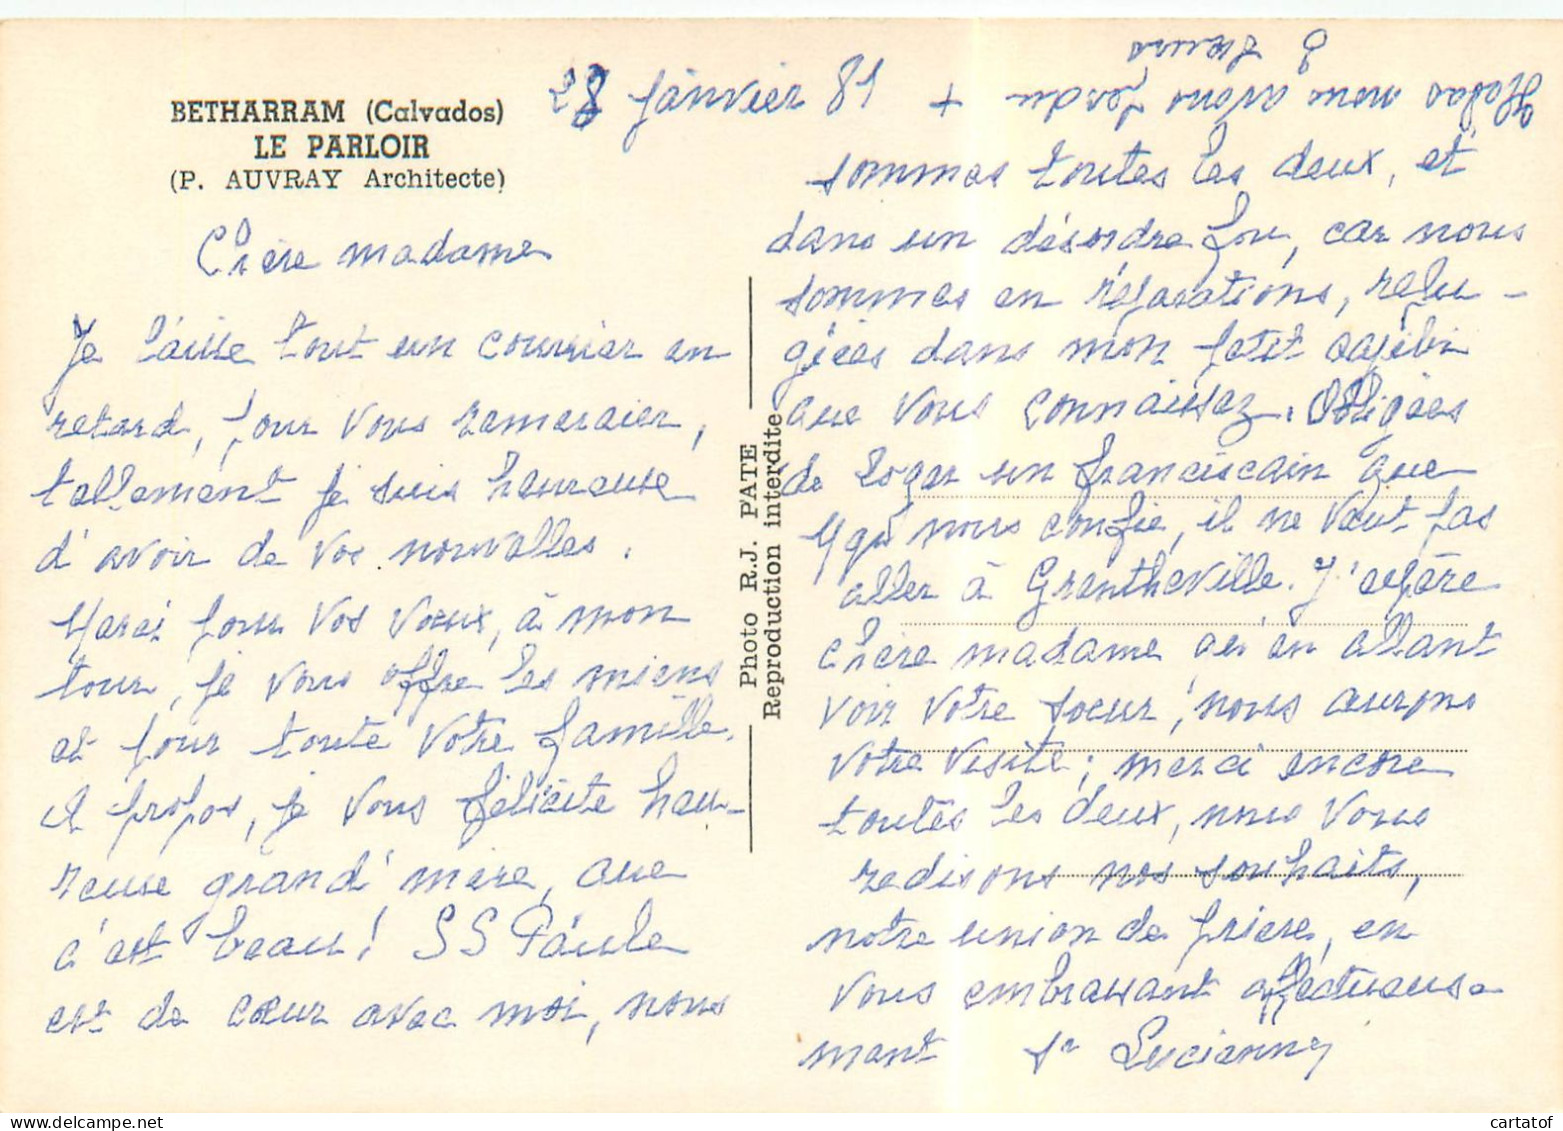 BETHARRAM (Calvados)
LE PARLOIR
(P. AUVRAY Architecte)
28 Janvier 81
Chère madame
Je laisse tout un courrier en
retard, pour vous remercier,
tellement je suis heureuse
d'avoir de vos nouvelles.
Merci pour vos voeux, à mon
tour, je vous offre les miens
et pour toute votre famille.
A propos, je vous félicite heu-
reuse grand'mère, que
c'est beau! SS Paule
est de cœur avec moi, nous
Photo R.J. PATE
Reproduction interdite
+ Hélas nous avons perdu
sommes toutes les deux, et
dans un désordre fou, car nous
sommes en réparations, refu-
giées dans mon petit
que vous connaissez. Obligées
de loger un franciscain que
nous confie, il ne veut pas
aller à Grentheville. J'espère
chère madame qu'en allant
voir votre soeur, nous aurons
votre visite; merci encore
toutes les deux, nous vous
redisons nos souhaits,
notre union de prière, en
vous embrassant affectueuse
ment Sr Lucienne
cartatof